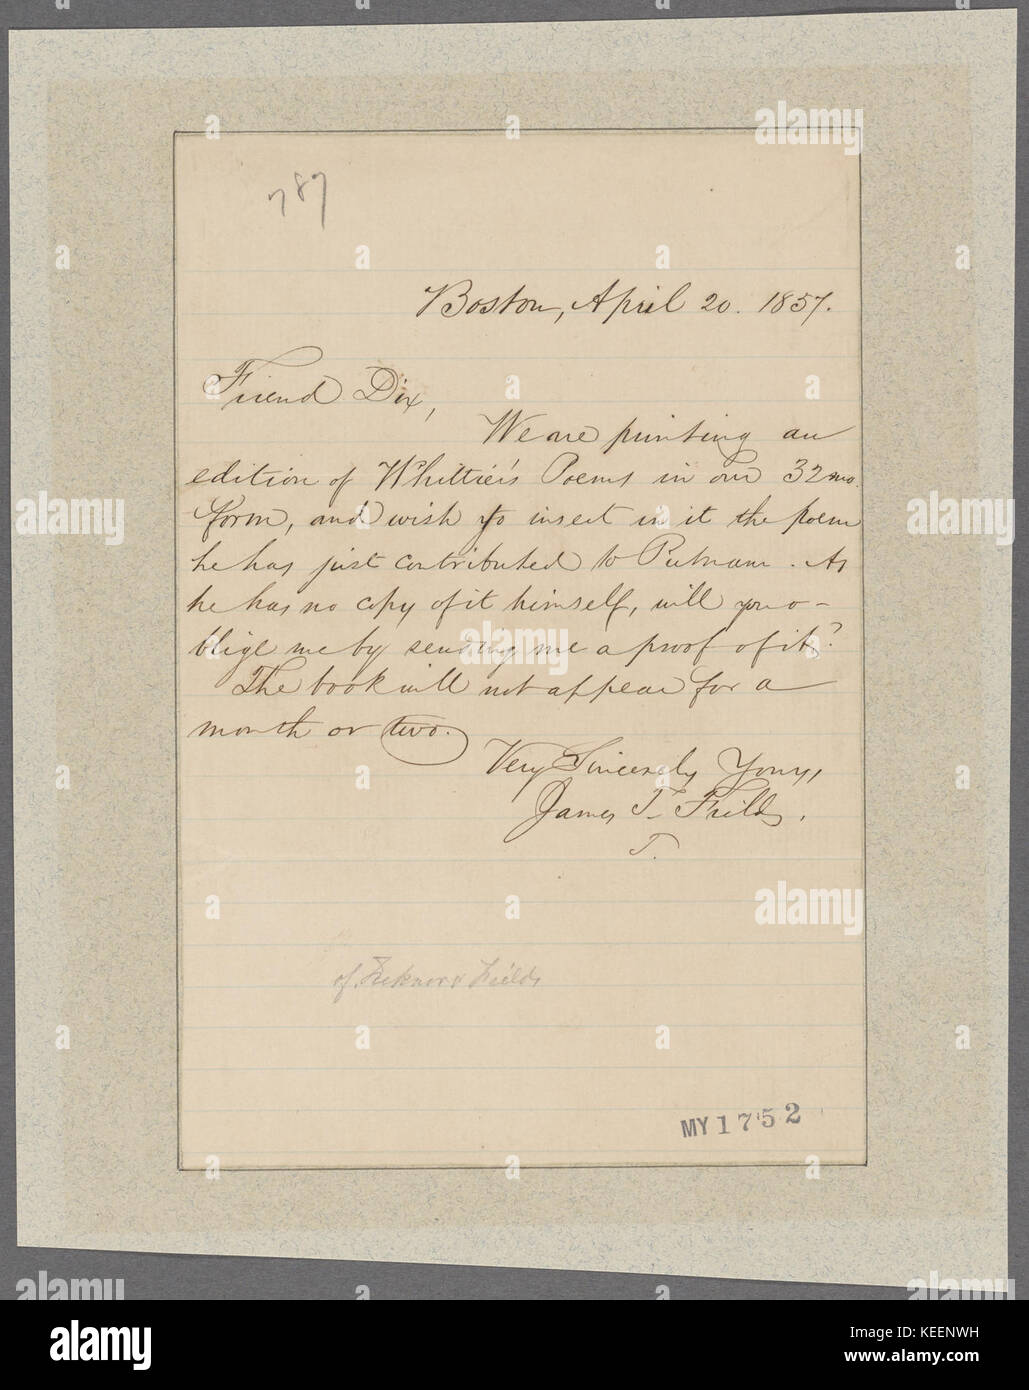 787
Boston, April 20. 1857.
Friend Dix,
We are printing an
edition of Whittier's Poems in our 32mo.
form, and wish to insert in it the poem
he has just contributed to Putnam. As
he has no copy of it himself, will you o-
blige me by sending me a proof of it?
The book will not appear for a
month or two.
Very Sincerely Yours,
James T. Fields.
T.
of Ticknor & Fields
MY 17 '52
alamy
Image ID: KEENWH
www.alamy.com